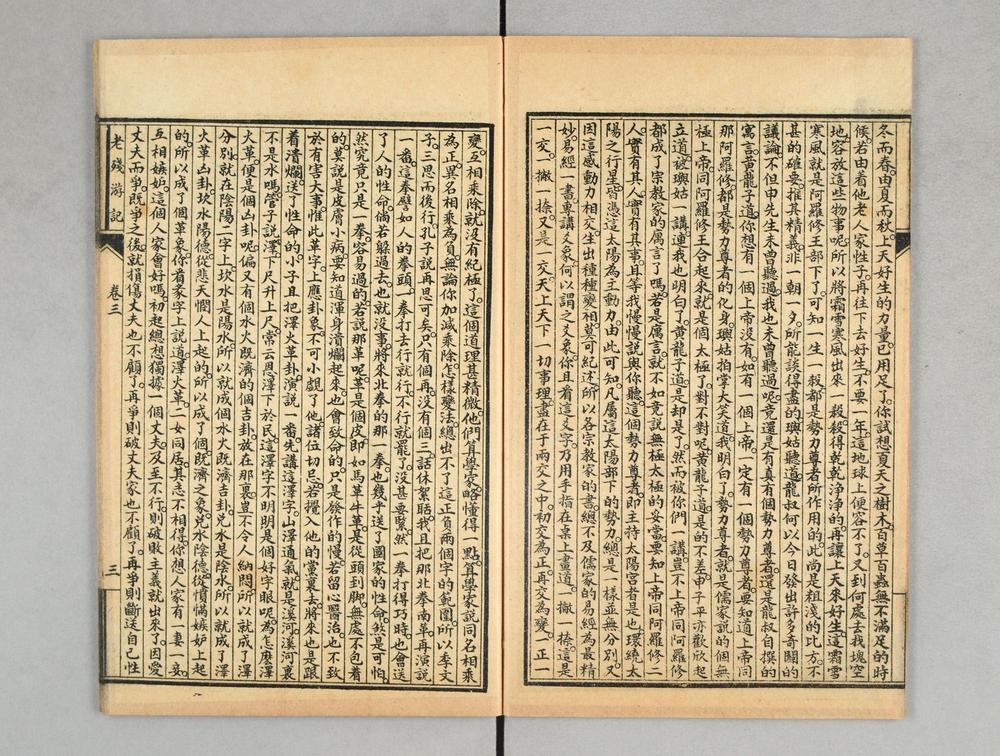 冬而春。由夏而秋。上天好生的力量。已用足了。你試想夏天之樹木。百草百蟲。無不滿足的時
候。若由着他老人家性子。再往下去好生。不要一年。這地球上便容不了。又到何處去找塊空
地。容放這些物事呢。所以將霜雪寒風出來。一殺殺得乾乾淨淨的。再讓上天來好生。這霜雪
寒風。就是阿羅修王部下了。可知一生一殺。都是勢力尊者所作用的。此尚是粗淺的比方。不
甚的確。要推其精義。非一朝一夕。所能談得盡的。璵姑聽道。龍叔何以今日發出許多奇闢的
議論。不但申先生未曾聽過。我也未曾聽過呢。究竟還是有真有個勢力尊者。還是龍叔自撰的
寓言。黃龍子道。你想有一個上帝沒有。如有一個上帝。一定有一個勢力尊者。要知道上帝同
那阿羅修。都是勢力尊者的化身。璵姑拍掌大笑道。我明白了。勢力尊者。就是儒家說的個無
極。上帝同阿羅修王合起來。就是個太極了。對不對呢。黃龍子道。是的不差。申子平亦歡欣起
立道。被璵姑一講。連我也明白了。黃龍子道。是却是了。然而被你們一講。豈不上帝同阿羅修
都成了宗教家的寓言了嗎。若是寓言。就不如竟說無極太極的妥當。要知上帝同阿羅修二
人。實有其人。實有其事。且等我慢慢說與你聽。這個勢力尊者。即主持太陽宮者是也。環繞太
陽之行星。皆憑這太陽為主動力。由此可知。凡屬這太陽部下的勢力。總是一樣。並無分別。又
因這感動力相交。生出種種變相。莫可紀述。所以各宗教家的書。總不及儒家的易經。為最精
妙。易經一書。專講爻象。何以謂之爻象。你且看這爻字。乃用手指在桌上畫道。一撇一捺。這是
一交。一撇一捺。又是一交。天上天下。一切事理。盡在于兩交之中。初交為正。再交為變。正一
變。互相乘除。就沒有紀極了。這個道理甚精微。他們算學家略懂得一點。算學家說同名相乘
為正。異名相乘為負。無論你加減乘除。怎樣變法。總出不了這正負兩個字的範圍。所以季文
子三思而後行。孔子說再思可矣。只有個再。沒有個三。話休絮聒。我且把那北拳南革。再演說
一番。這拳譬如人的拳頭。一拳打去。行就行。不行就罷了。沒甚要緊。然一拳打得巧時。也會送
了人的性命。倘若躲過去。也就沒事。將來北拳的那一拳。也幾乎送了國家的性命。煞是可怕。
然究竟只是一拳。容易過的。若說那革呢。革是個皮。即如馬革牛革。是從頭到脚無處不包着
的。莫說是皮膚小病。要知道渾身潰爛起來。也會致命的。只是發作的慢。若留心醫治。也不致
於有害大事。惟此革字上應卦象。不可小覷了他。諸位切忌。若攪入他的黨裏去。將來也是跟
着潰爛送了性命的。小子且把澤火革卦演說一番。先講這澤字。山澤通氣。就是溪河。溪河裏
不是水嗎。管子說澤下尺升上尺。常云恩澤下於民。這澤字不明明是個好字眼呢。為怎麼澤
火革。便是個凶卦呢。偏又有個水火既濟的個吉卦放在那裏。豈不令人納悶。所以就成了澤
分別。就在陰陽二字上。坎水是陽水。所以就成個水火既濟吉卦。兌水是陰水。所以就成了澤
火革凶卦。坎水陽德。從悲天憫人上起的。所以成了個既濟之象。兌水陰德。從憤懣嫉妒上起
的。所以成了個革象。你看彖字上說道。澤火革。二女同居。其志不相得。你想人家有一妻一妾。
互相嫉妬。這個人家會好嗎。初起總想獨據一個丈夫。及至不行。則破敗主義就出來了。因愛
丈夫而爭。既爭之後。就損傷丈夫也不顧了。再爭則破丈夫家也不顧了。再爭則斷送自己性
老殘游記
卷三
三